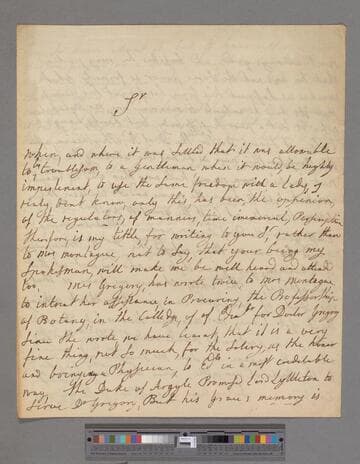 Sr
When, and where it was Setled that it was allowable
to troublesom to a Gentleman when it would be highly
impertinent, to use the same freedom with a Lady, I
realy dont know, only this has been the oppenion,
of the regulators, of manners, time immemorial, Prescription
therefore is my title, for writing to you Sr, rather than
to Mrs montague, not to Say, that your being my
Spokesman, will make me be well heard and attend
too, Mrs Gregory, has wrote twice, to Mrs Montague
to intreat her assistance in Procuring, the Professorship
of Botany, in the College, of for Doctor Gregory
Since she wrote we have learnt, that it is a very
fine thing, not so much, for the Salery, as the honor
and being a Physician, to in a most creditable
way. The Duke of Argyle Promised Lord Lyttleton to
Serve Dr Gregory, But his Grace's memory is